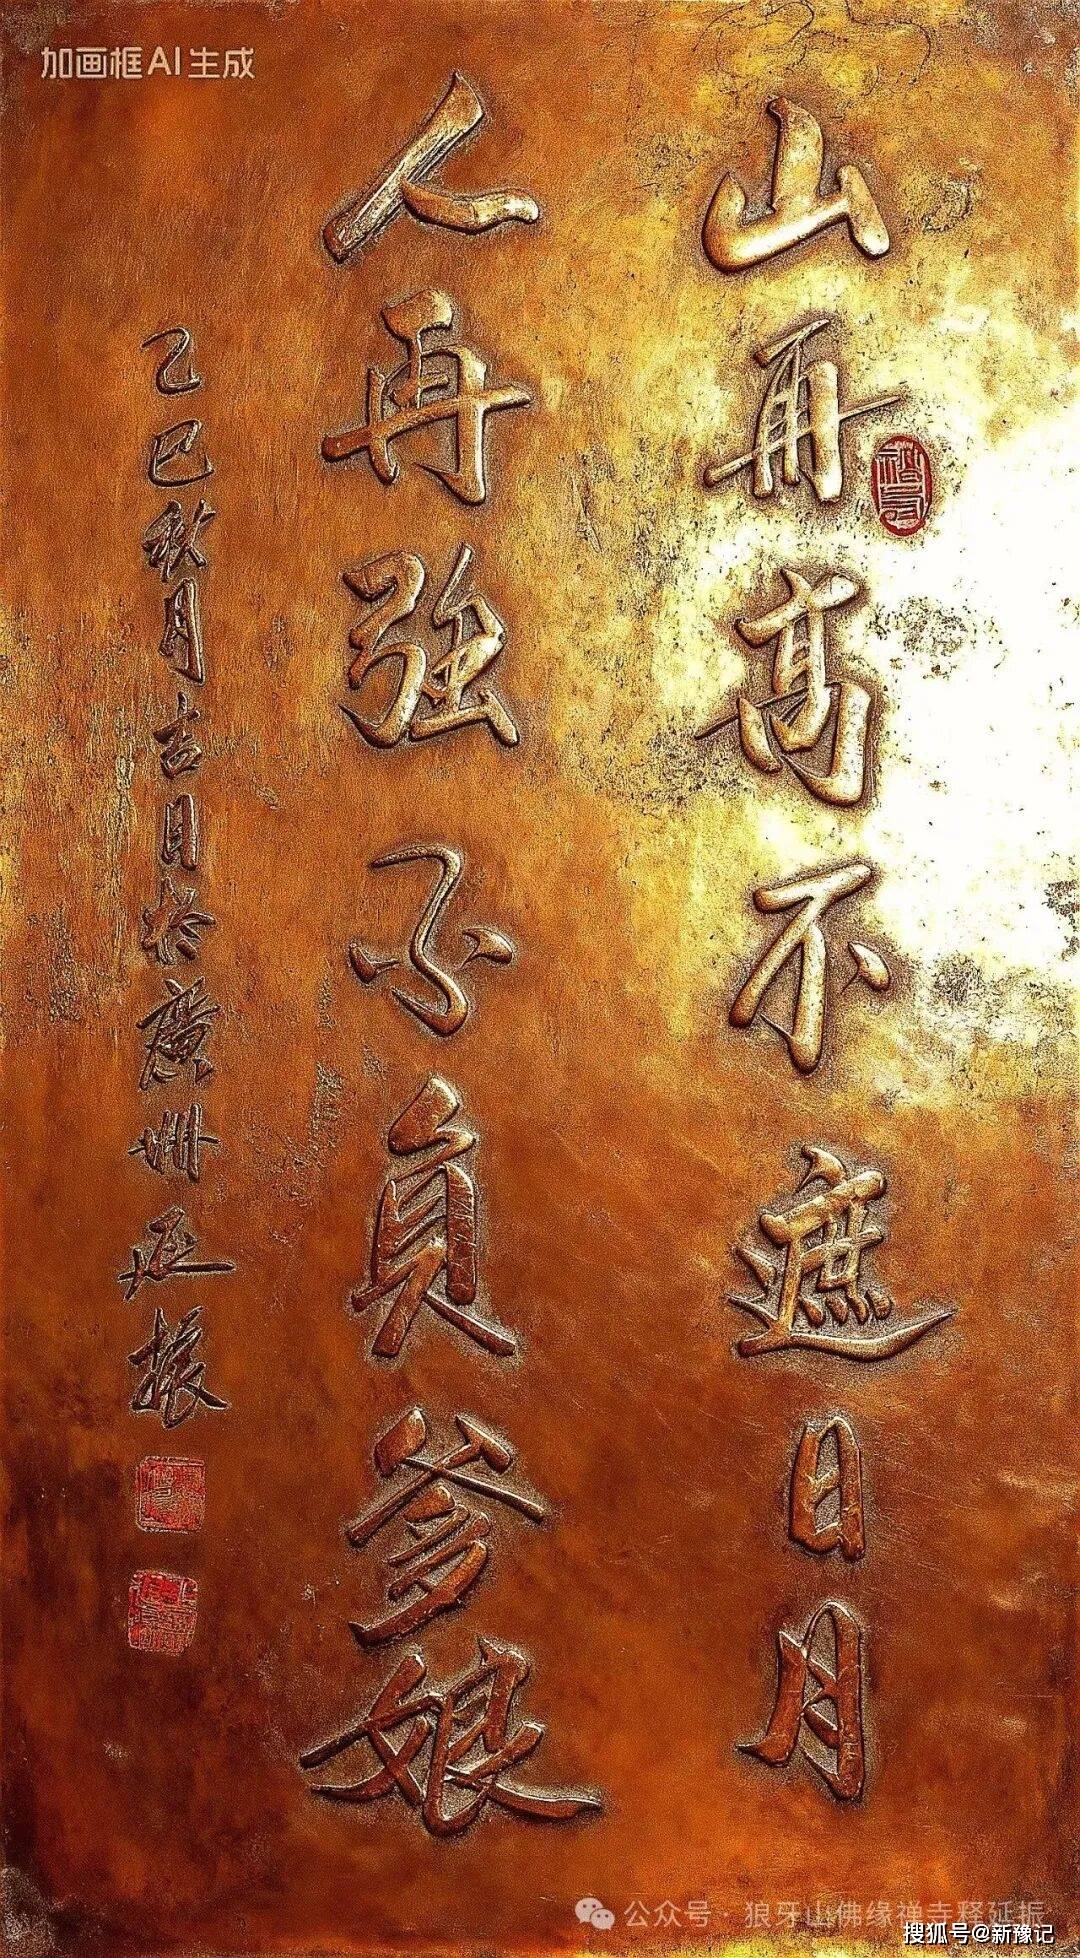 加画框AI生成
山再高不遮日月
人再强不负爹娘
乙巳秋月吉日於廣州延振
公众号·狼牙山佛缘禅寺释延振
搜狐号@新豫记